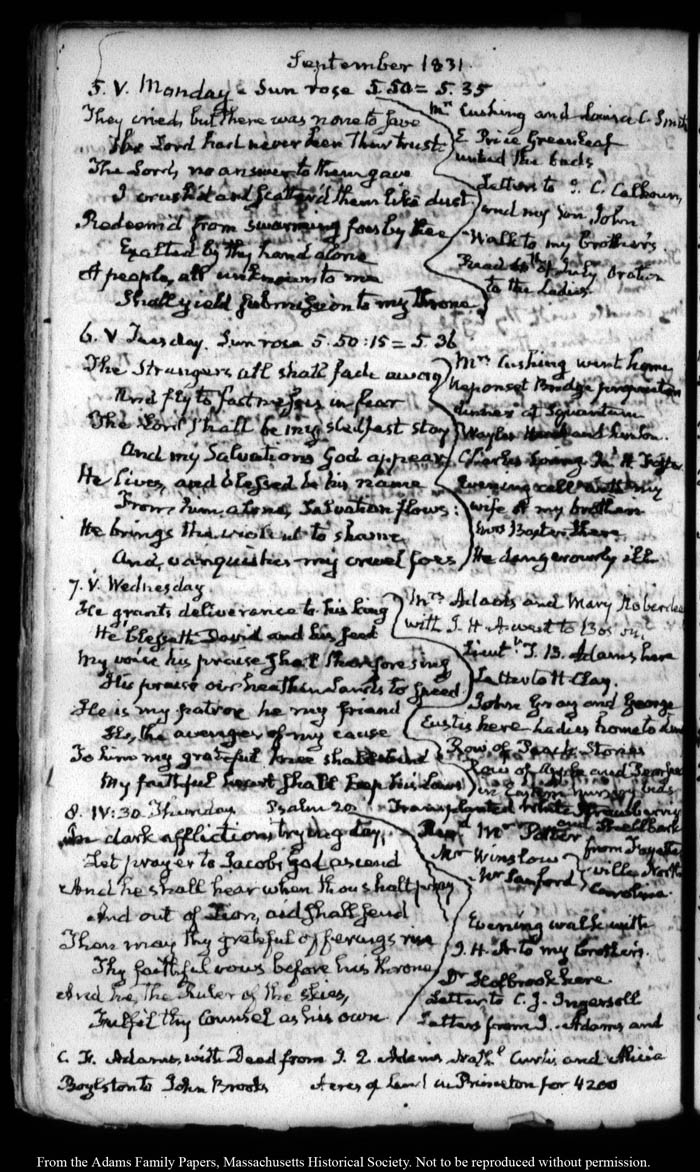 September 1831.
5. V. Monday. Sun rose 5.50 = 5.35
They cried, but there was none to save
The Lord had never been their trust
The Lord, no answer to them gave
I crush'd and scatter'd them like dust
Redeem'd from swarming foes by thee
Exalted by thy hand alone
A people, all unknown to me
Shall yield submission to my throne.
Mrs Cushing and Louisa C. Smith
E Price Greenleaf
the Beds
Letters to J. C. Calhoun,
and my Son John
Walk to my brother's.
Read 4th of July Oration
to the Ladies.
6. V Tuesday. Sun rose 5.50:15 = 5.36
The Strangers all shall fade away
And fly to fastnesses in fear
The Lord shall be my stedfast stay
And my Salvation's God appear
He lives, and blessed be his name
From him alone, Salvation flows:
He brings the violent to shame
And vanquishes my cruel foes
Mrs Cushing went home
Neponset Bridge proprietors
dinner at Squantum
Evening call with my
wife at my brothers
there
He dangerously ill
7. V. Wednesday.
He grants deliverance to his king
He blesseth David and his seed
My voice his praise shall therefore sing
His praise o'er heathen lands to speed
He is my patron he my friend
He, the avenger of my cause
To him my grateful knee shall bend
My faithful heart shall keep his Laws
Mrs Adams and Mary
with I. H. A went to Boston.
Lieutt J. B. Adams here
Letter to H. Clay.
John Gray and George
Eustis here Ladies home to dine
Row of Peach Stones
Row of Apple and Pear
in Eastern nursery beds
8. IV:30. Thursday Psalm 20 Transplanted White Strawberry
and Shellbark
In dark affliction's trying day,
Let prayer to Jacob's God ascend
And he shall hear when thou shalt pray
And out of Zion, aid shall send
Then may thy grateful offerings rise
Thy faithful vows before his throne
And he, the Ruler of the skies,
Fulfil thy Counsel as his own.
Mr Potter
Mr Winslow
Mr Sanford
from Fayette
ville North
Carolina.
Evening walk with
I. H. A. to my brother's.
Dr Holbrook here
Letter to C. J. Ingersoll
Letters from J. Adams and
C. F. Adams, with Deed from J. Q. Adams, Nathl Curtis and Alicia
Boylston to John Brooks Acres of land in Princeton for 4200
From the Adams Family Papers, Massachusetts Historical Society. Not to be reproduced without permission.